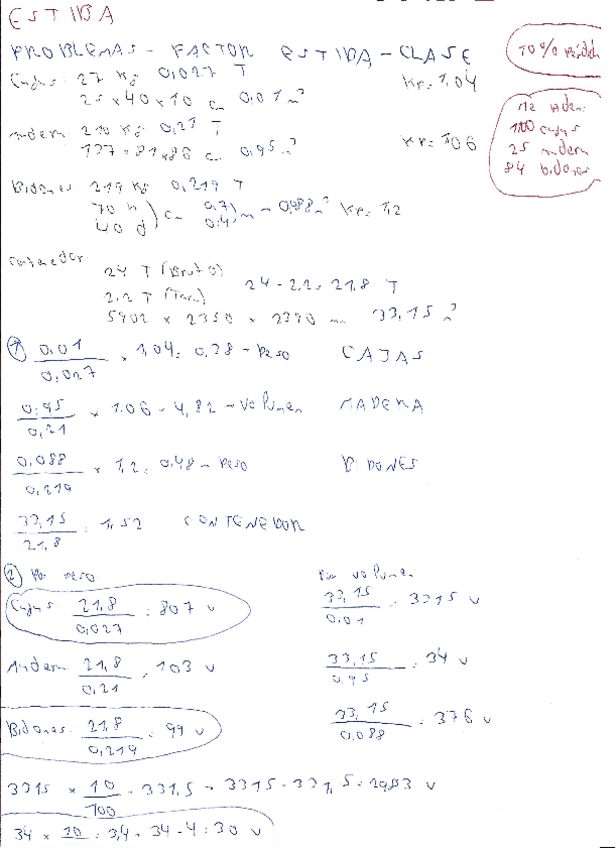 ESTIBA
PROBLEMAS - FACTOR ESTIBA - CLASE
10%
Cajas: 27 Kg 0,027 T Kr: 1,04
25 x 40 x 10 cm 0,01 m³
12
100 cajas
25 madera
84 bidones
madera: 210 Kg 0,21 T Kr: 1,06
137 x 81 x 86 cm 0,95 m³
Bidones 219 Kg 0,219 T
70 h 0,7
40 d ) cm 0,4 ) m - 0,088 m³ Kr: 1,2
Contenedor:
24 T (Bruto)
24 - 2,2 = 21,8 T
2,2 T (Tara)
5902 x 2350 x 2390 mm 33,15 m³
① 0,01 / 0,027 x 1,04 = 0,38 - Peso CAJAS
0,95 / 0,21 x 1.06 - 4,82 - Volumen MADERA
0,088 / 0,219 x 1,2 = 0,48 - Peso BIDONES
33,15 / 21,8 = 1,52 CONTENEDOR
② Por peso
Por volumen
Cajas 21,8 / 0,027 = 807 u
33,15 / 0,01 = 3315 u
Madera 21,8 / 0,21 = 103 u
33,15 / 0,95 = 34 u
Bidones 21,8 / 0,219 = 99 u
33,15 / 0,088 = 376 u
3315 x 10 / 100 = 331,5 - 3315 - 331,5 = 2983 u
34 x 10 = 3,4 - 34 - 4 = 30 u